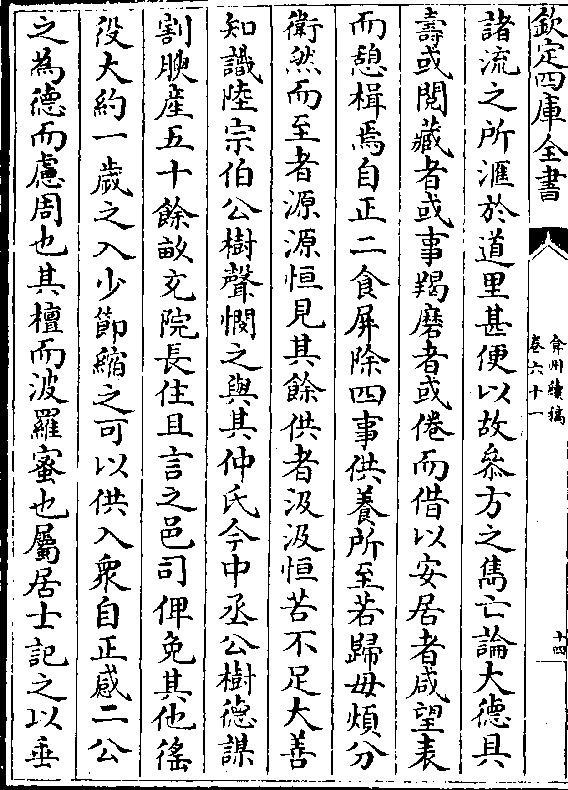 欽定四庫全書
弇州續稿
卷六十一
十四
諸流之所滙於道里甚便以故叅方之雋亡論大德具
壽或閲藏者或事羯磨者或倦而借以安居者咸望表
而憩楫焉自正二食屏除四事供養所至若歸毋煩分
衛然而至者源源恒見其餘供者汲汲恒苦不足大善
知識陸宗伯公樹聲憫之與其仲氏今中丞公樹德謀
割腴產五十餘畝充院長住且言之邑司俾免其他徭
役大約一歲之入少節縮之可以供入衆自正感二公
之為德而慮周也其檀而波羅蜜也屬居士記之以垂